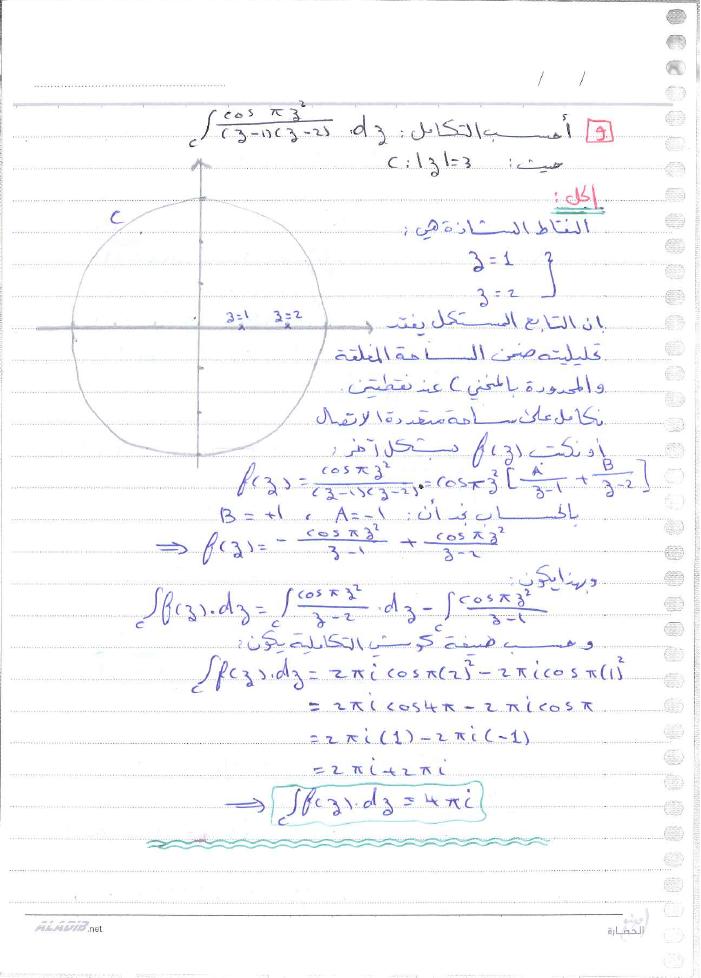 / /
[9] أحسب التكامل: ∫_C cos πz² / (z-1)(z-2) . dz
حيث: C: |z|=3
الحل:
C
النقاط الشاذة هي:
z=1
z=2
z=1 z=2
إن التابع المستكمل يفقد
تحليليته ضمن الساحة المغلقة
والمحدودة بالمنحني C عند نقطتين.
نكامل على ساحة متعددة الاتصال
أو نكتب f(z) بشكل آخر:
f(z) = cos πz² / (z-1)(z-2) = cos πz² [ A/(z-1) + B/(z-2) ]
بالحساب نجد أن: A=-1 ، B=+1
⇒ f(z) = - cos πz² / (z-1) + cos πz² / (z-2)
وبهذا يكون:
∫_C f(z).dz = ∫_C cos πz² / (z-2) . dz - ∫_C cos πz² / (z-1)
وحسب صيغة كوشي التكاملية يكون:
∫_C f(z).dz = 2πi cos π(2)² - 2πi cos π(1)²
= 2πi cos 4π - 2πi cos π
= 2πi (1) - 2πi (-1)
= 2πi + 2πi
⇒ ∫_C f(z).dz = 4πi
ALADIB.net
الحضارة